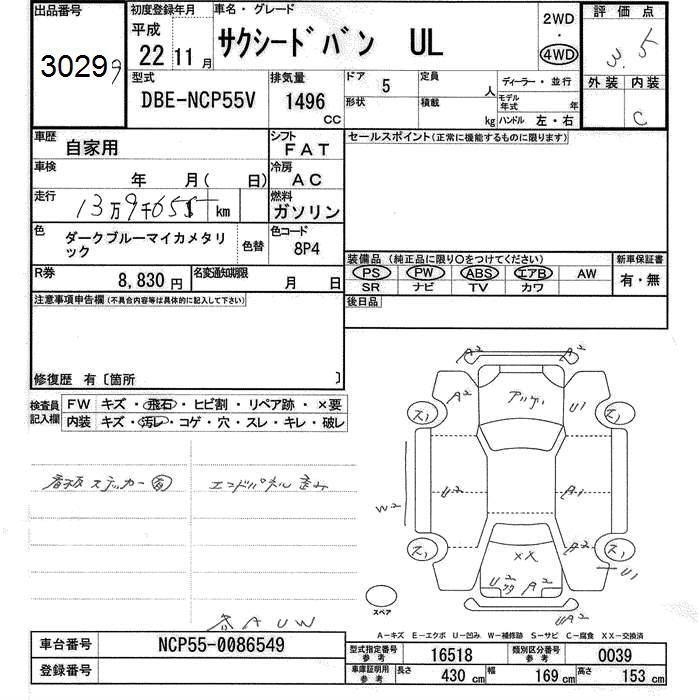 出品番号
30299
初度登録年月
平成
22 11月
車名・グレード
サクシードバン UL
2WD
・
4WD
評価点
3.5
外装 内装
C
型式
DBE-NCP55V
排気量
1496
CC
ドア 5
形状
定員
人
積載
kg
ディーラー・並行
モデル年式 年
ハンドル 左・右
車歴
自家用
シフト
FAT
車検
年 月( 日)
冷房
AC
走行
13万9千655 km
燃料
ガソリン
色
ダークブルーマイカメタリック
色替
色コード
8P4
R券
8,830 円
名変通知期限
月 日
セールスポイント(正常に機能するものに限ります)
装備品(純正品に限り○をつけてください)
PS PW ABS エアB AW
SR ナビ TV カワ
新車保証書
有・無
後日品
注意事項申告欄(不具合内容等は具体的に記入して下さい)
修復歴 有〔箇所 〕
検査員記入欄
FW キズ・飛石・ヒビ割・リペア跡・×要
内装 キズ・汚レ・コゲ・穴・スレ・キレ・破レ
看板ステッカー有
エンドパネル歪み
各AUW
A2
A2
A2
U1
ス1
ス1
W2
U2
A1
ス1
ス1
XX
A2
U1
U2
A2
UA2
スペア
A-キズ E-エクボ U-凹み W-補修跡 S-サビ C-腐食 XX-交換済
車台番号
NCP55-0086549
登録番号
型式指定番号
参考
16518
類別区分番号
参考
0039
車庫証明用
参考
長さ
430 cm
幅
169 cm
高さ
153 cm